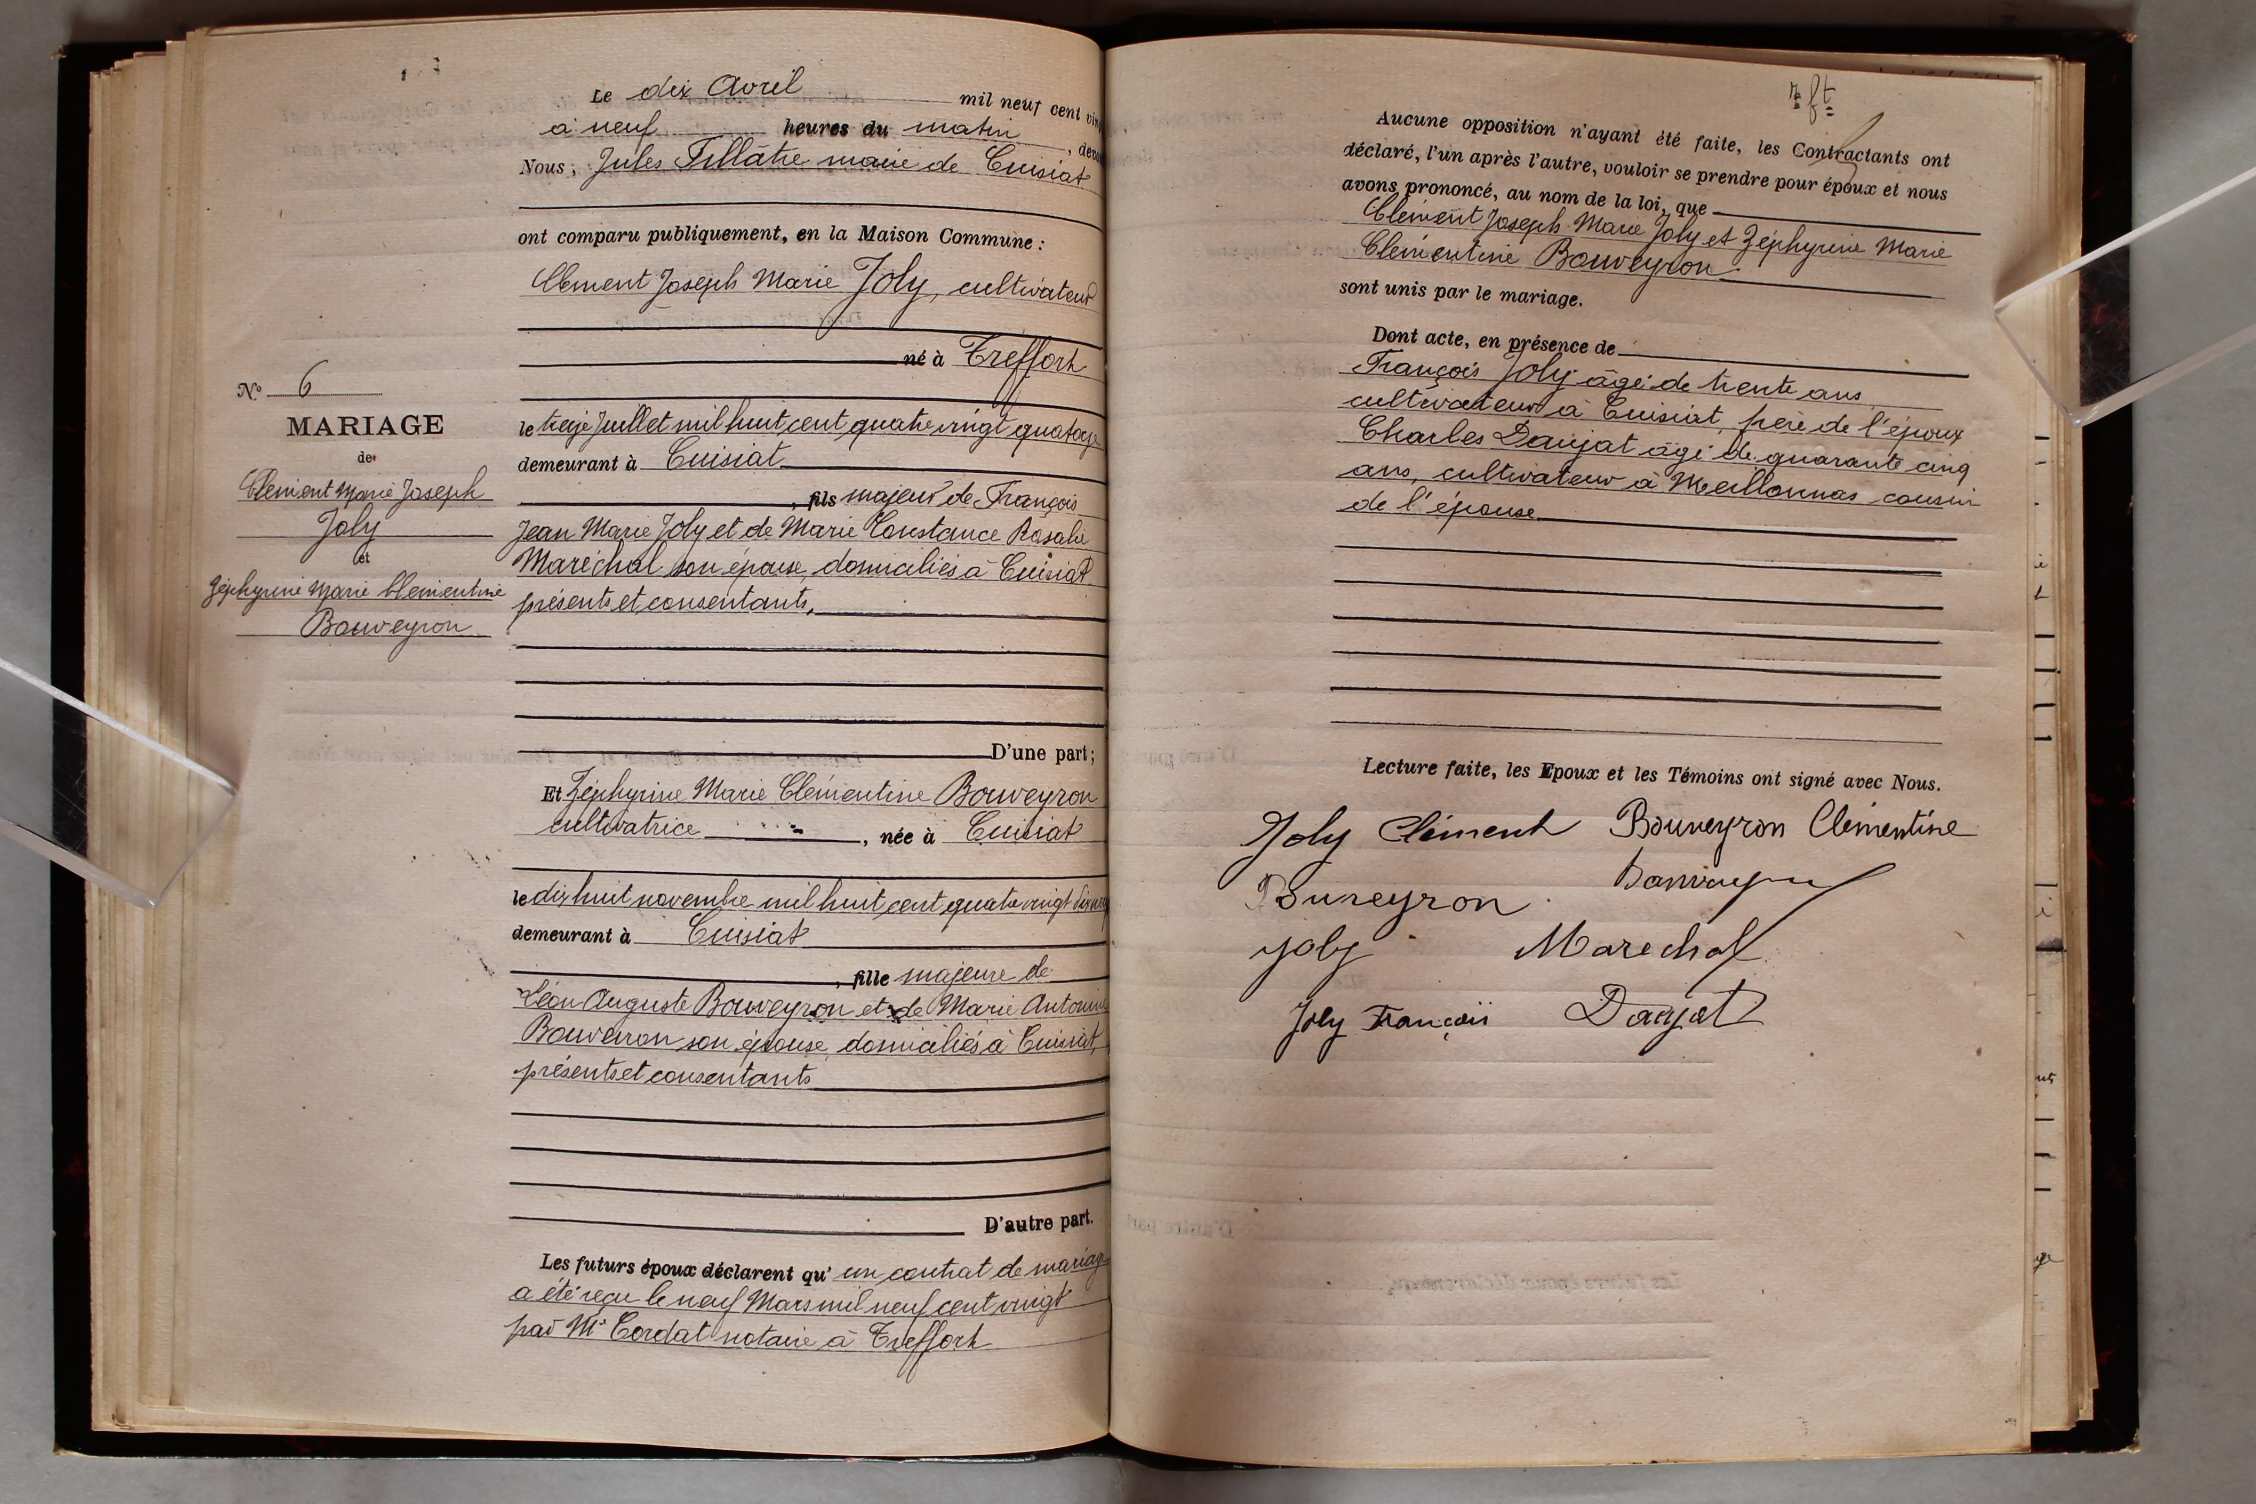 Le dix Avril mil neuf cent vin
à neuf heures du matin, deva
Nous, Jules Tillâtre maire de Cuisiat
ont comparu publiquement, en la Maison Commune :
Clément Joseph Marie Joly, cultivateur
né à Treffort
le treize Juillet mil huit cent quatre vingt quatorze
demeurant à Cuisiat
, fils majeur de François
Jean Marie Joly et de Marie Constance Rosalie
Maréchal son épouse, domiciliés à Cuisiat
présents et consentants,
D'une part ;
Et Zéphyrine Marie Clémentine Bouveyron
cultivatrice, née à Cuisiat
le dix huit novembre mil huit cent quatre vingt dix neuf
demeurant à Cuisiat
, fille majeure de
Léon Auguste Bouveyron et de Marie Antonine
Bouveiron son épouse, domiciliés à Cuisiat,
présents et consentants
D'autre part.
Les futurs époux déclarent qu' un contrat de mariage
a été reçu le neuf Mars mil neuf cent vingt
par Me Cordat notaire à Treffort
N° 6
MARIAGE
de
Clément Marie Joseph
Joly
et
Zéphyrine Marie Clémentine
Bouveyron
Aucune opposition n'ayant été faite, les Contractants ont
déclaré, l'un après l'autre, vouloir se prendre pour époux et nous
avons prononcé, au nom de la loi, que
Clément Joseph Marie Joly et Zéphyrine Marie
Clémentine Bouveyron
sont unis par le mariage.
Dont acte, en présence de
François Joly âgé de trente ans
cultivateur à Cuisiat, frère de l'époux
Charles Daujat âgé de quarante cinq
ans, cultivateur à Meillonnas cousin
de l'épouse
Lecture faite, les Epoux et les Témoins ont signé avec Nous.
Joly Clément Bouveyron Clémentine
Buneyron
Joly Marechal
Joly François Daujat